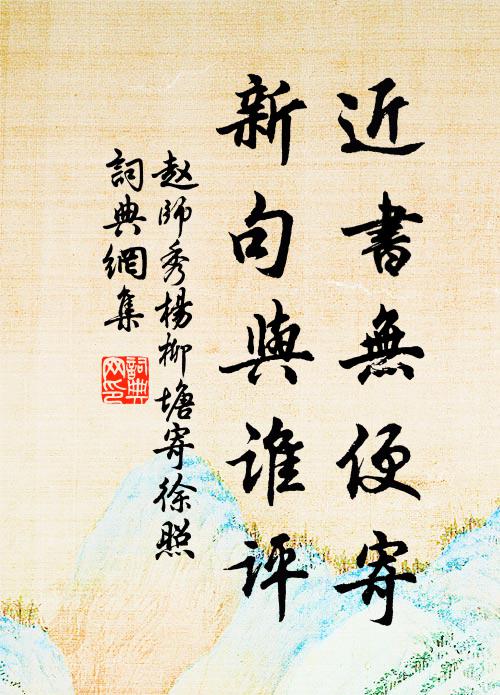 近書無便寄
新句與谁评
赵師秀楊柳塘寄徐照
詞典網集
詞典网印